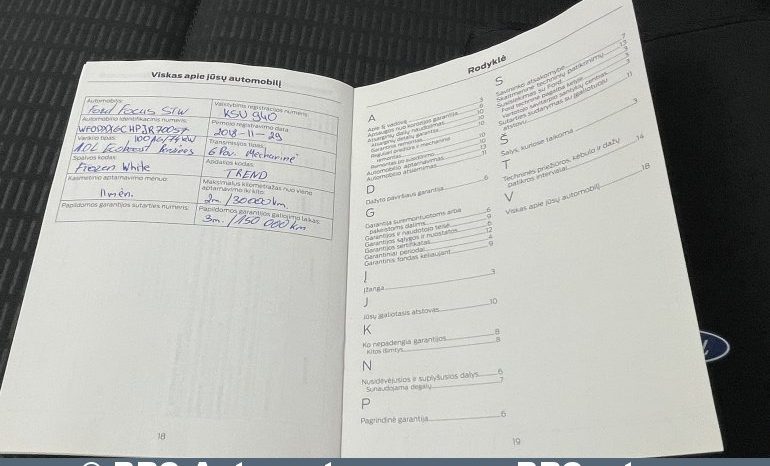 Viskas apie jūsų automobilį
Automobilis:
Ford Focus STW
Valstybinis registracijos numeris:
KSU 940
Automobilio identifikacinis numeris:
Pirmojo registravimo data:
2018-11-29
Variklio tipas:
100AG/74kW
1.0L EcoBoost
Transmisijos tipas:
6 Pav. Mechaninė
Spalvos kodas:
Frozen White
Apdailos kodas:
TREND
Kasmetinio aptarnavimo mėnuo:
11 mėn.
Maksimalus kilometražas nuo vieno
aptarnavimo iki kito:
2m/30000km
Papildomos garantijos sutarties numeris:
Papildomos garantijos galiojimo laikas:
3m./150 000km
18
Rodyklė
A
Apie šį vadovą 3
Apsaugos nuo korozijos garantija 6
Atsarginių dalių naudojimas 10
Atsarginių detalių garantija 10
Garantinis remontas 10
Reguliari priežiūra ir mechaninis
remontas 10
Automobilio aptarnavimas
Automobilio atsiėmimas 11
D
Dažyto paviršiaus garantija 6
G
Garantija suremontuotoms arba
pakeistoms dalims 6
Garantijos ir naudotojo teisė 9
Garantijos sąlygos ir nuostatos 6
Garantijos sertifikatas 12
Garantiniai periodai 4
Garantinis fondas keliaujant 9
Į
Įžanga 3
J
Jūsų įgaliotasis atstovas 10
K
Ko nepadengia garantijos 8
Kitos išimtys 8
N
Nusidėvėjusios ir suplyšusios dalys 6
Sunaudojama degalų 7
P
Pagrindinė garantija 6
S
Savininko atsakomybė 7
Skaitmeninė techninių patikrinimų 13
Susisiekimas su Ford 3
Sutarties sudarymas su įgaliotuoju
atstovu 11
Š
Šalys, kuriose taikoma 3
T
Techninės priežiūros, kėbulo ir dažų
patikros intervalai 14
V
Viskas apie jūsų automobilį 18
19